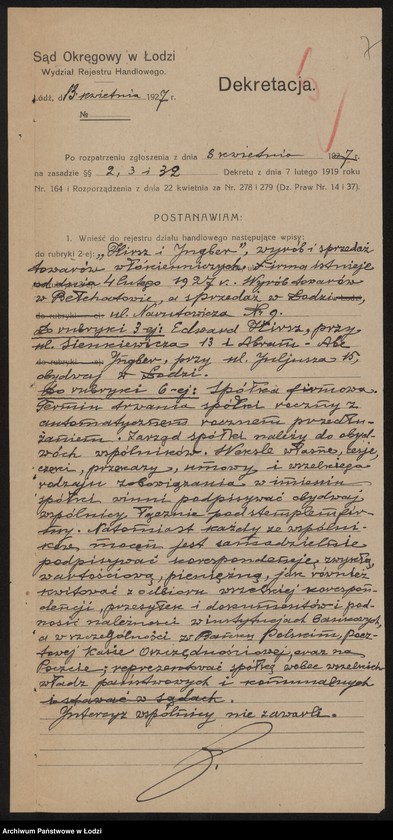 7
Sąd Okręgowy w Łodzi
Wydział Rejestru Handlowego.
Łódź, d. 13 kwietnia 1927 r.
№
Dekretacja.
Po rozpatrzeniu zgłoszenia z dnia 8 kwietnia 1927 r.
na zasadzie §§ 2, 3 i 32 Dekretu z dnia 7 lutego 1919 roku
Nr. 164 i Rozporządzenia z dnia 22 kwietnia za Nr. 278 i 279 (Dz. Praw Nr. 14 i 37).
POSTANAWIAM:
1. Wnieść do rejestru działu handlowego następujące wpisy:
do rubryki 2-ej: „Hirsz i Jngber", wyrób i sprzedaż
towarów włóścienniczych. Firma istnieje
od dnia 4 lutego 1927 r. Wyrób towarów
w Bełchatowie, a sprzedaż w Łodzi
ul. Narutowicza № 9.
Do rubryki 3-ej: Edward Hirsz, przy
ul. Sienkiewicza 13 i Abram - Abe
do rubryki -ej: Jngber, przy ul. Juljusza 15,
obydwaj w Łodzi.
Do rubryki 6-ej: Spółka firmowa.
Termin trwania spółki roczny z
automatycznem rocznem przedłu-
żaniem. Zarząd spółki należy do obyd-
wóch wspólników. Weksle własne,
czeki, przekazy, umowy i wszelkiego
rodzaju zobowiązania w imieniu
spółki winni podpisywać obydwaj
wspólnicy łącznie pod stemplem fir-
my. Natomiast każdy ze wspólni-
ków mocen jest samodzielnie
podpisywać korespondencję zwykłą,
wartościową, pieniężną, jak również
kwitować z odbioru wszelkiej korespon-
dencji, przesyłek i dokumentów i pod-
nosić należności w instytucjach bankowych,
a w szczególności w Banku Polskim, Pocz-
towej Kasie Oszczędnościowej, oraz na
Poczcie; reprezentować spółkę wobec wszelkich
władz państwowych i komunalnych
i stawać w sądach.
Jntercyz wspólnicy nie zawarli.
Archiwum Państwowe w Łodzi